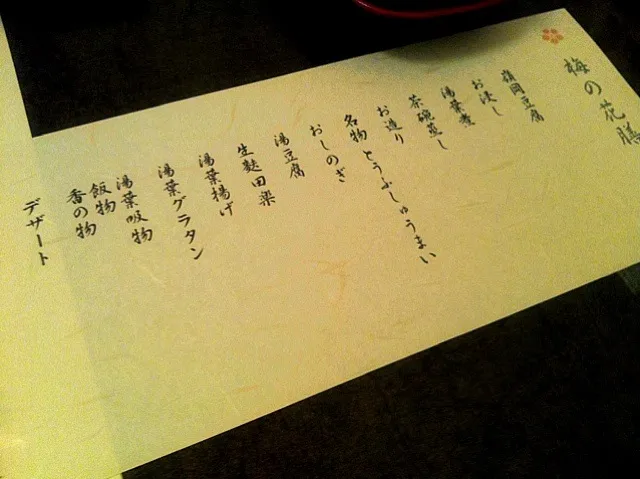 梅の花膳
嶺岡豆腐
お浸し
湯葉煮
茶碗蒸し
お造り
名物 とうふしゅうまい
おしのぎ
湯豆腐
生麩田楽
湯葉揚げ
湯葉グラタン
湯葉吸物
飯物
香の物
デザート